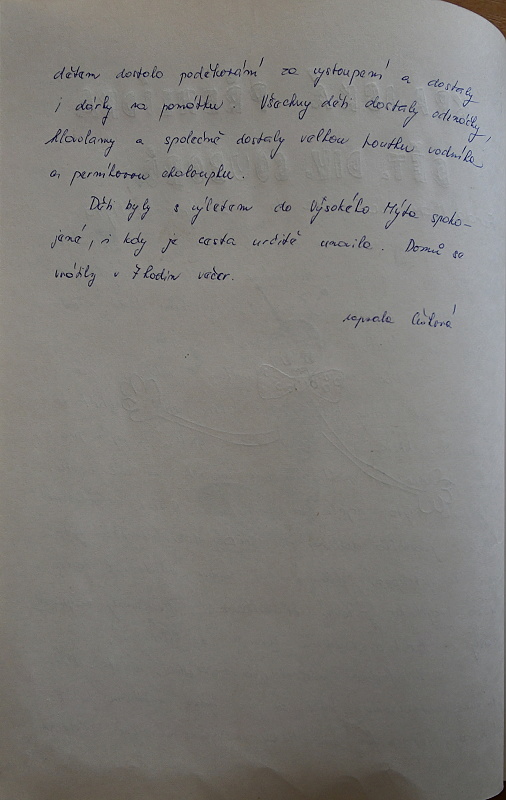 dětem dostalo poděkování za vystoupení a dostaly
i dárky na památku. Všechny děti dostaly odznáčky,
hlavolamy a společně dostaly velkou loutku vodníka
a perníkovou chaloupku.
Děti byly s výletem do Vysokého Mýta spoko-
jené, i když je cesta určitě unavila. Domů se
vrátily v 7 hodin večer.
zapsala